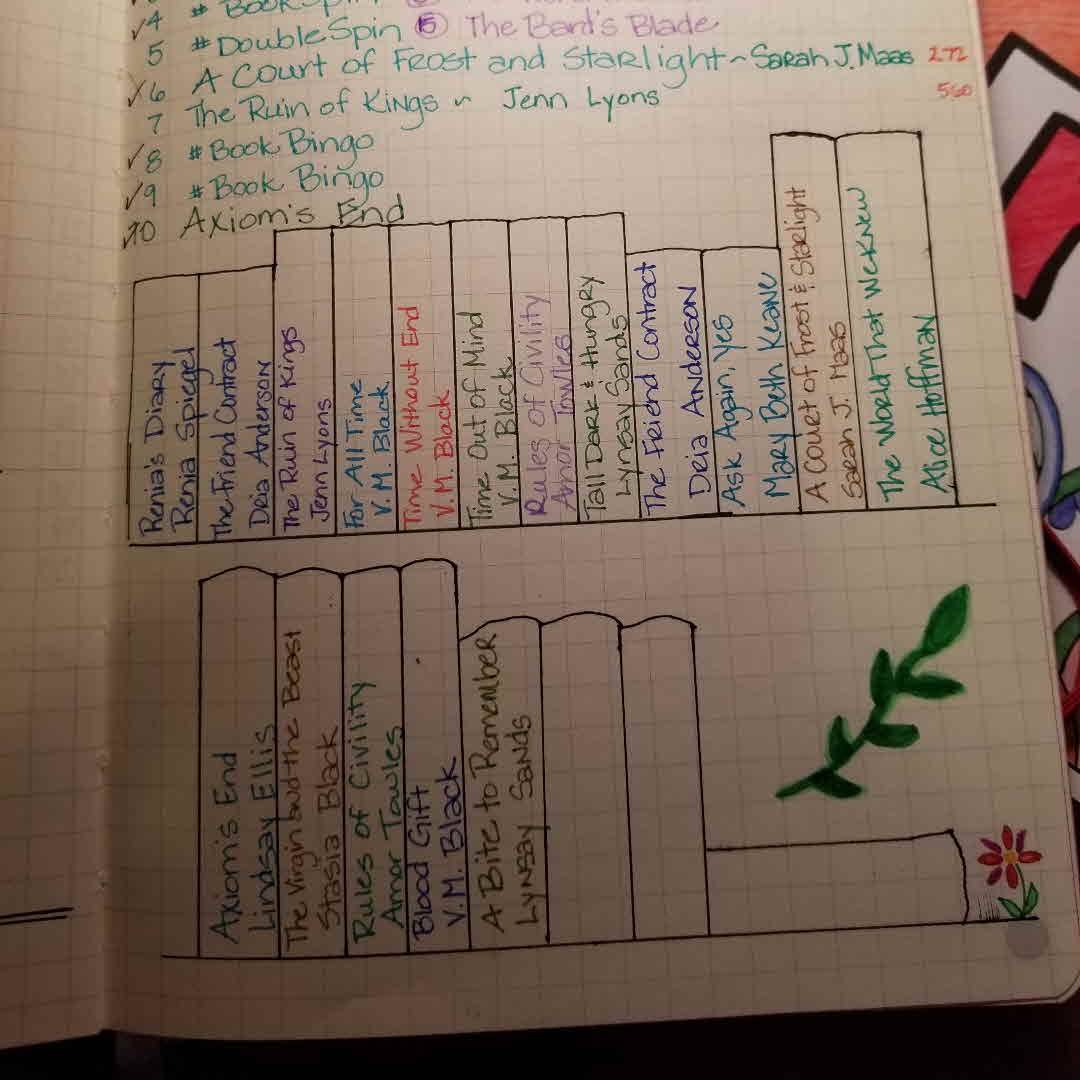 √4 # BookSpin
5 # DoubleSpin 5 The Bard's Blade
√6 A Court of Frost and Starlight ~ Sarah J. Maas 272
7 The Ruin of Kings ~ Jenn Lyons 560
√8 # Book Bingo
√9 # Book Bingo
√10 Axiom's End
Renia's Diary
Renia Spiegel
The Friend Contract
Deia Anderson
The Ruin of Kings
Jenn Lyons
For All Time
V. M. Black
Time Without End
V.M. Black
Time Out of Mind
V.M. Black
Rules of Civility
Amor Towles
Tall Dark & Hungry
Lynsay Sands
The Friend Contract
Deia Anderson
Ask Again, Yes
Mary Beth Keane
A Court of Frost & Starlight
Sarah J. Maas
The World That We Knew
Alice Hoffman
Axiom's End
Lindsay Ellis
The Virgin and the Beast
Stasia Black
Rules of Civility
Amor Towles
Blood Gift
V.M. Black
A Bite to Remember
Lynsay Sands